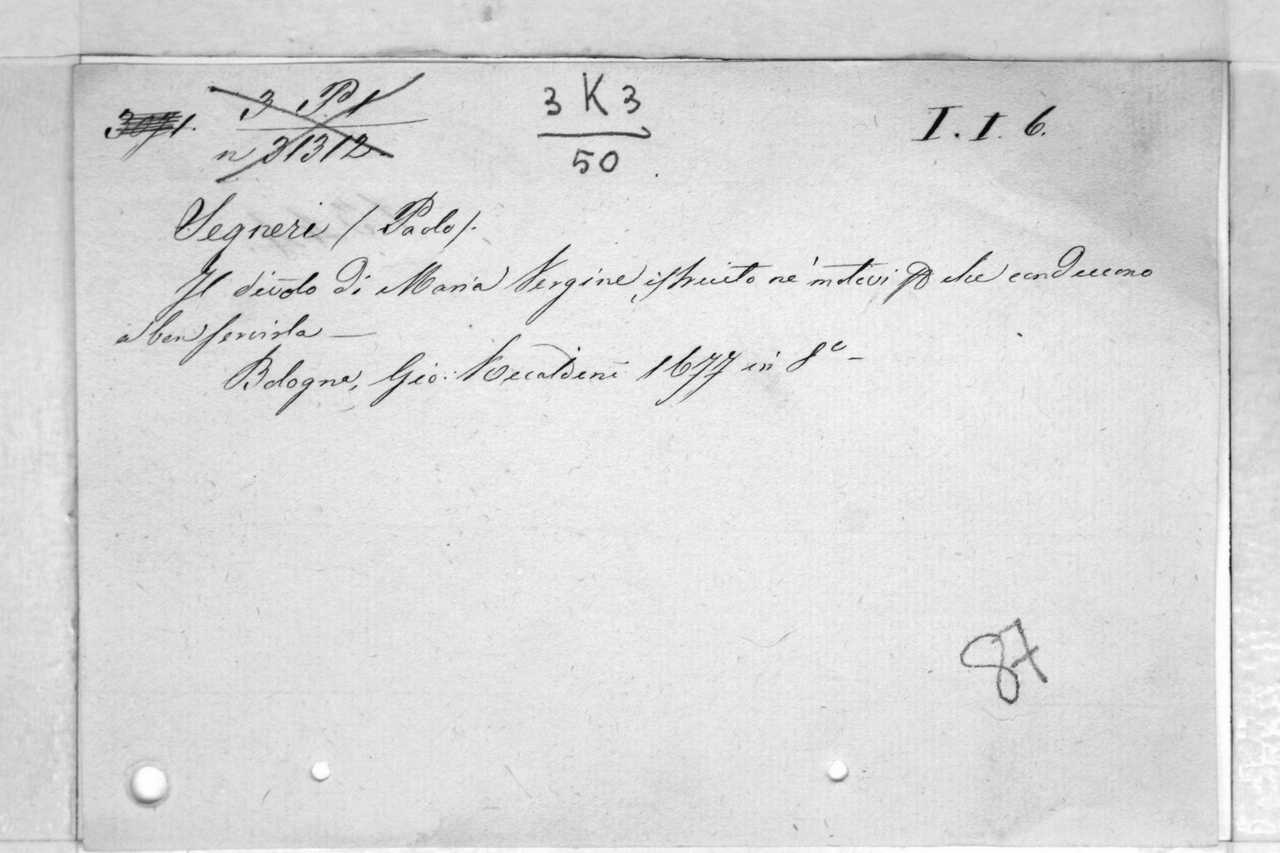 3 P 1
n 31312
3 K 3
50
I. I. 6.
Segneri / Paolo /.
Il divoto di Maria Vergine, istruito ne' motivi che conducono
a ben servirla —
Bologna, Gio: Recaldini 1677 in 8º —
87